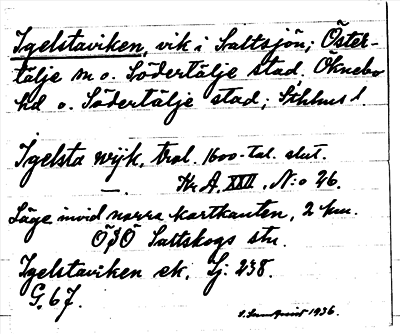 Igelstaviken, vik i Saltsjön; Öster-
tälje m o. Södertälje stad, Öknebo
hd o. Södertälje stad; Sthlms l
Igelsta wijk, trol. 1600-tal. slut.
— . Kr A. XXII. N:o 26.
Läge invid norra kartkanten, 2 km.
ÖSÖ Saltskogs stn.
Igelstaviken ek. Sj: 238.
G. 67.
1936.